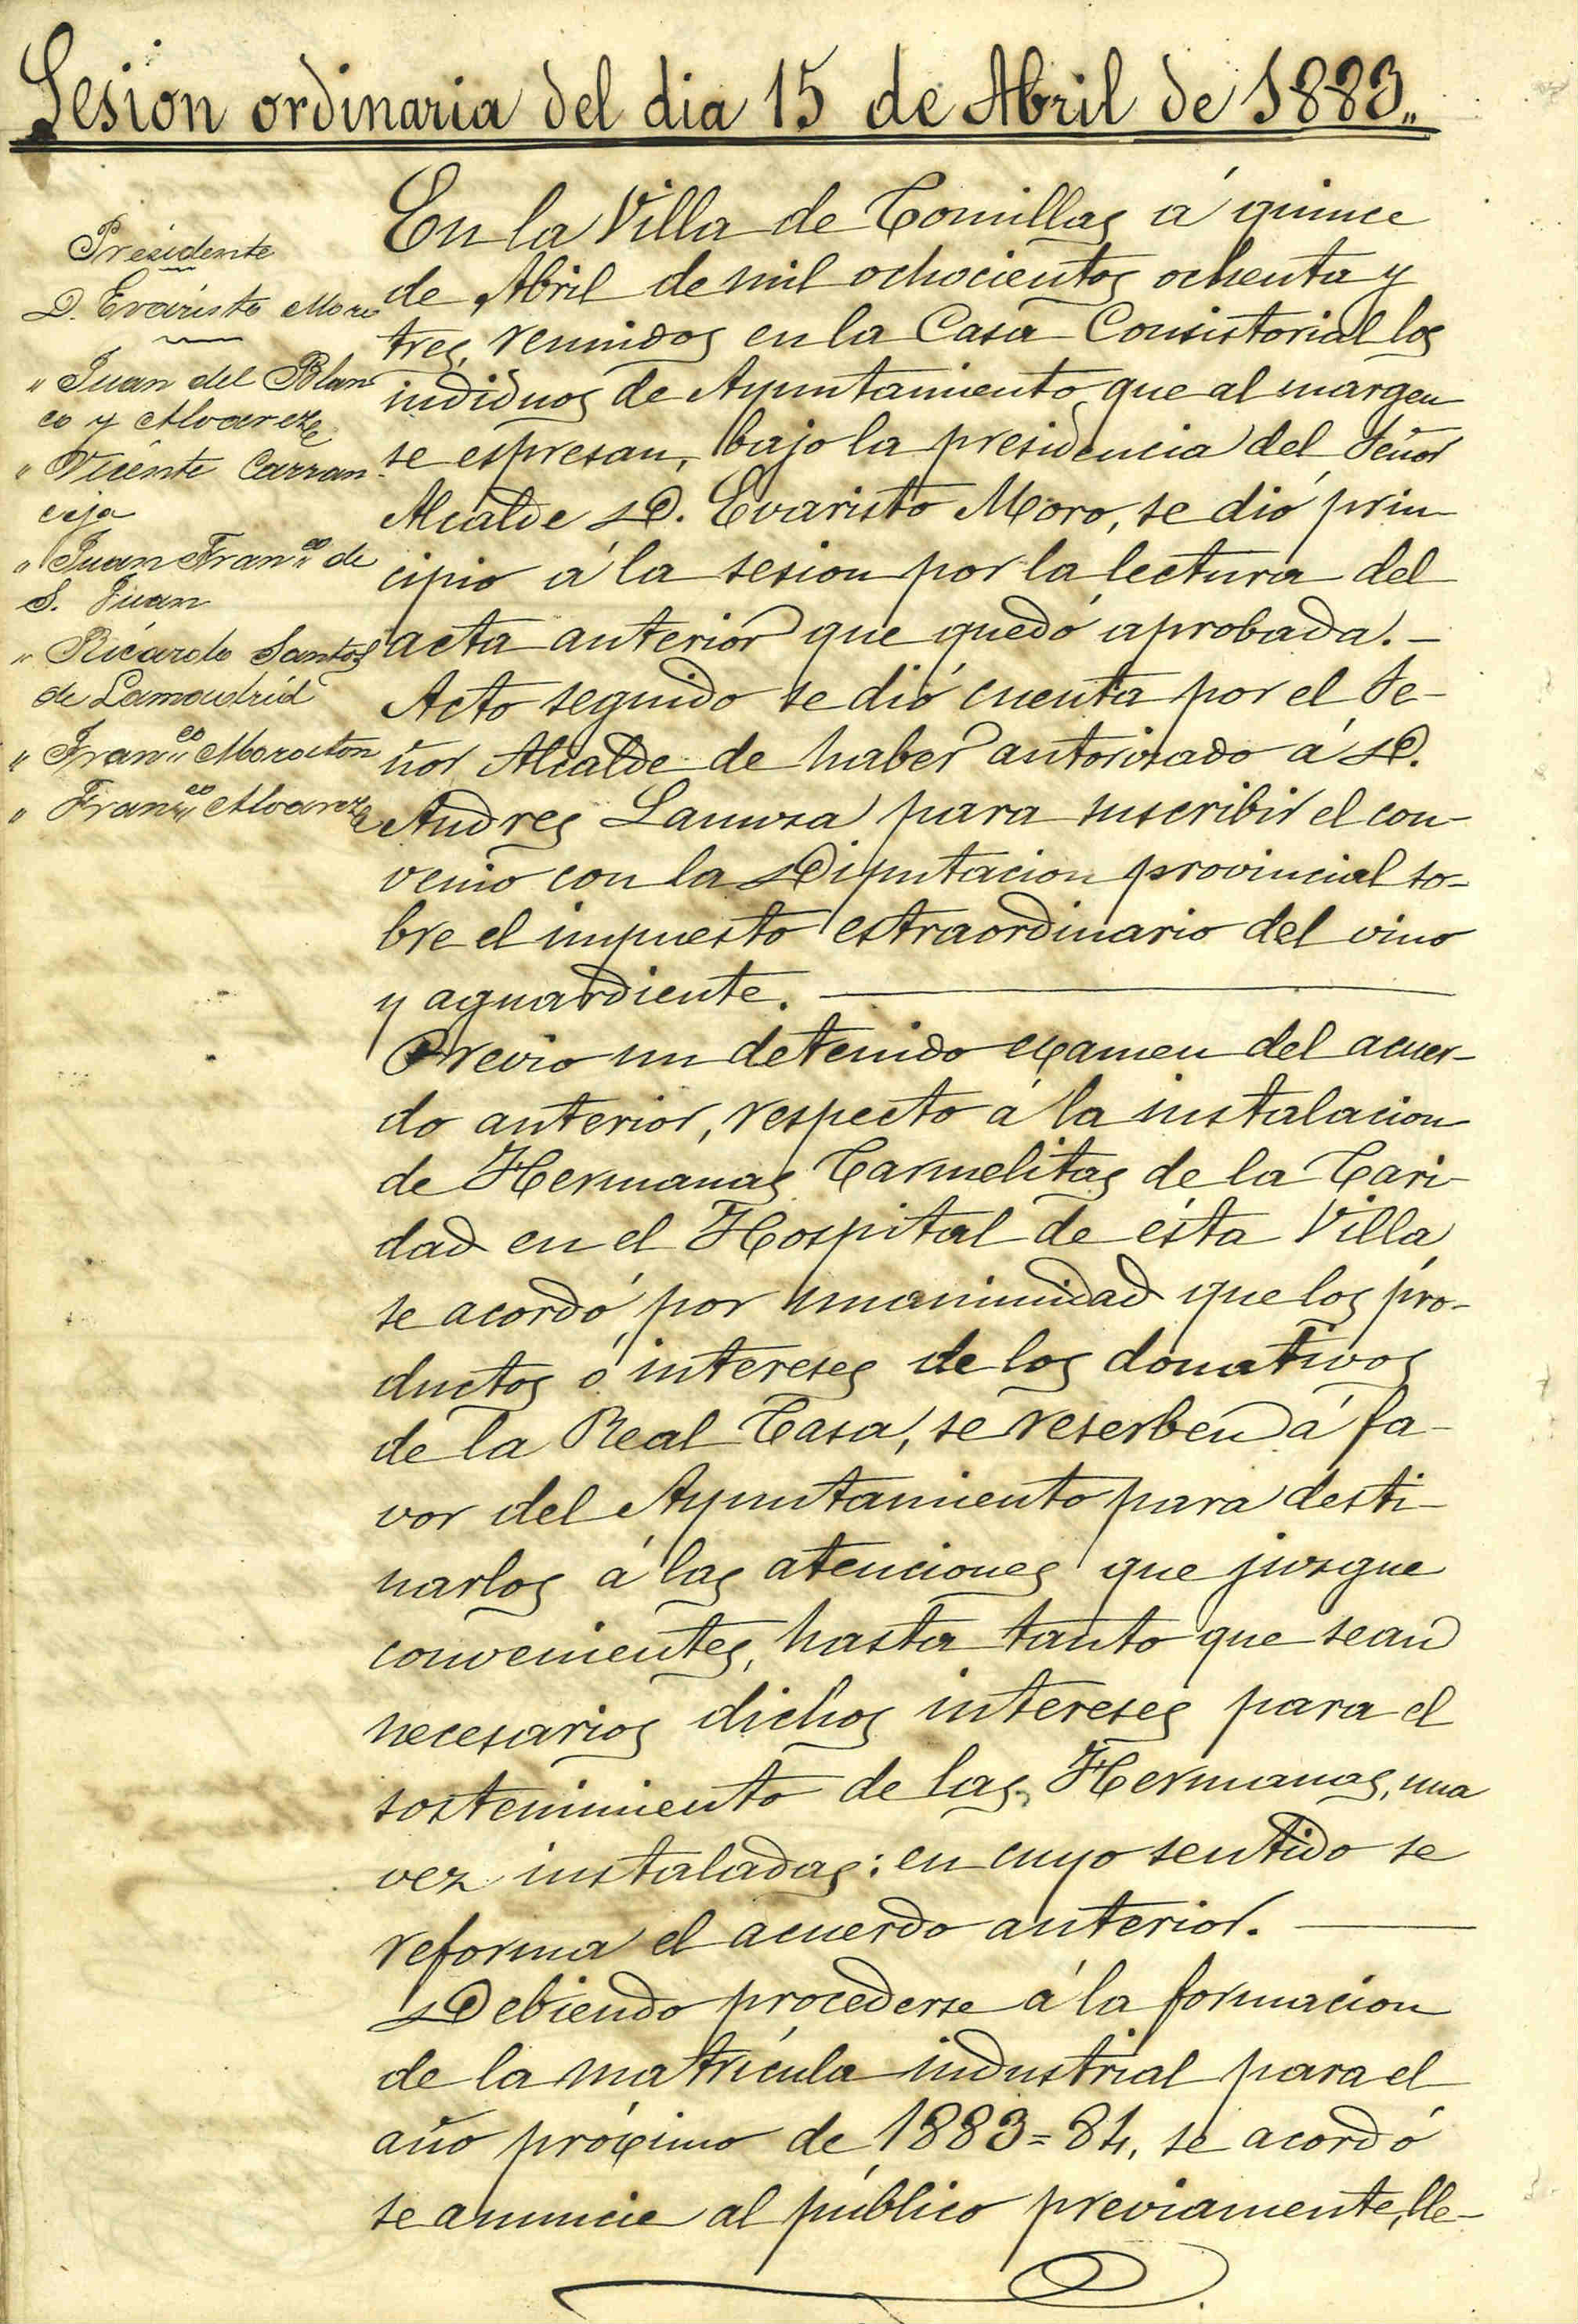 Sesion ordinaria del dia 15 de Abril de 1883.,,
Presidente
D. Evaristo Moro
" Juan del Blan
co y Alvarez
" Vicente Carran
ceja
" Juan Fran.co de
S. Juan
" Ricardo Santos
de Lamadrid
" Fran.co Morante
" Fran.co Alvarez
En la Villa de Comillas á quince
de Abril de mil ochocientos ochenta y
tres, reunidos en la Casa Consistorial los
individuos de Ayuntamiento que al margen
se espresan, bajo la presidencia del Señor
Alcalde D. Evaristo Moro, se dió prin-
cipio á la sesion por la lectura del
acta anterior que quedó aprobada. —
Acto seguido se dió cuenta por el Se-
ñor Alcalde de haber autorizado á D.
Andres Lanuza para suscribir el con-
venio con la Diputacion provincial so-
bre el impuesto estraordinario del vino
y aguardiente. —
Previo un detenido examen del acuer-
do anterior, respecto á la instalacion
de Hermanas Carmelitas de la Cari-
dad en el Hospital de ésta Villa,
se acordó por unanimidad que los pro-
ductos ó intereses de los donativos
de la Real Casa, se reserben á fa-
vor del Ayuntamiento para desti-
narlos á las atenciones que juzgue
convenientes, hasta tanto que sean
necesarios dichos intereses para el
sostenimiento de las Hermanas, una
vez instaladas: en cuyo sentido se
reforma el acuerdo anterior. —
Debiendo procederse á la formacion
de la matrícula industrial para el
año próximo de 1883=84, se acordó
se anuncie al público previamente, lle-